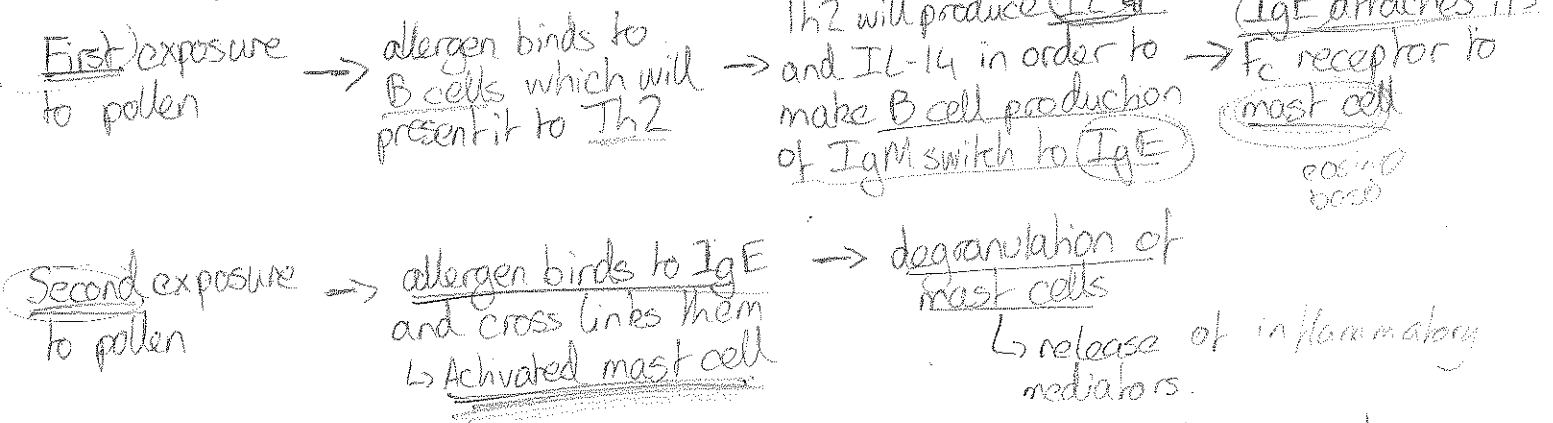 First exposure
to pollen
→ allergen binds to
B cells which will
present it to Th2
→ Th2 will produce
and IL-14 in order to
make B cell production
of IgM switch to IgE
→ (IgE attaches its
Fc receptor to
mast cell
eosino
baso
Second exposure
to pollen
→ allergen binds to IgE
and cross links them
↳ Activated mast cell
→ degranulation of
mast cells
↳ release of inflammatory
mediators.